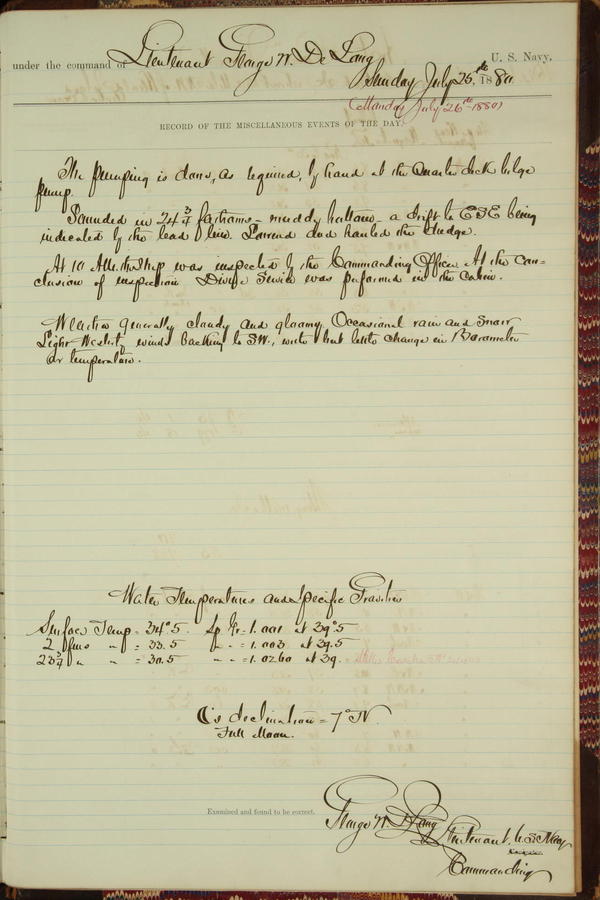 under the command of Lieutenant George W. De Long U. S. Navy,
Sunday July 25th, 1880
(Monday July 26th 1880)
RECORD OF THE MISCELLANEOUS EVENTS OF THE DAY.
The pumping is done, as required, by hand at the Quarter deck bilge
pump.
Sounded in 24 3/4 fathoms – muddy bottom – a drift to ESE being
indicated by the lead line. Lowered and hauled the dredge.
At 10 AM the ship was inspected by the Commanding Officer. At the con-
clusion of inspection Divine Service was performed in the Cabin.
Weather generally cloudy and gloomy. Occasional rain and snow.
Light Westerly winds backing to SW., with but little change in Barometer
or temperature.
Water Temperatures and Specific Gravities
Surface Temp = 34°.5 Sp Gr = 1.001 at 39°.5
2 fms " = 33.5 " " = 1.003 at 39.5
23 3/4 " " = 30.5 " " = 1.0260 at 39.
☾'s declination = 7° N
Full Moon.
Examined and found to be correct.
George W. De Long
Lieutenant, U.S. Navy
Commanding